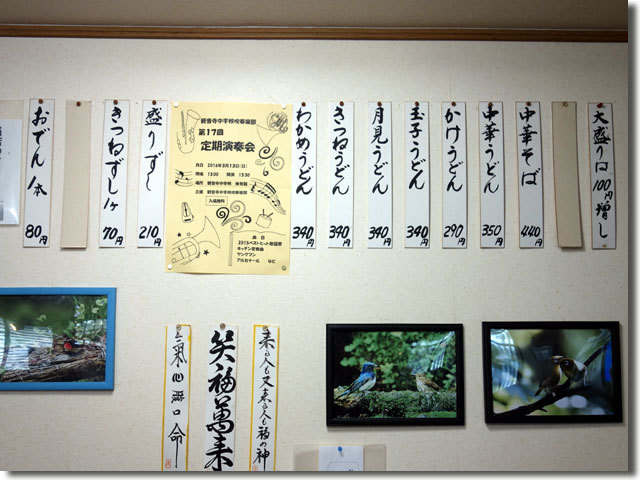 大盛りは100円増し
中華そば 440円
中華うどん 350円
かけうどん 290円
玉子うどん 340円
月見うどん 340円
きつねうどん 340円
わかめうどん 340円
観音寺中学校吹奏楽部
第17回
定期演奏会
月日 2016年3月13日(日)
開場 13:00 開演 13:30
場所 観音寺中学校 体育館
主催 観音寺中学校吹奏楽部
入場無料
曲目
2015ベストヒット歌謡祭
キッチン変奏曲
ヤングマン
アルセナール など
盛りずし 210円
きつねずし1ヶ 70円
おでん1本 80円
来る人も又来る人も福の神
笑福萬来
氣心 口命